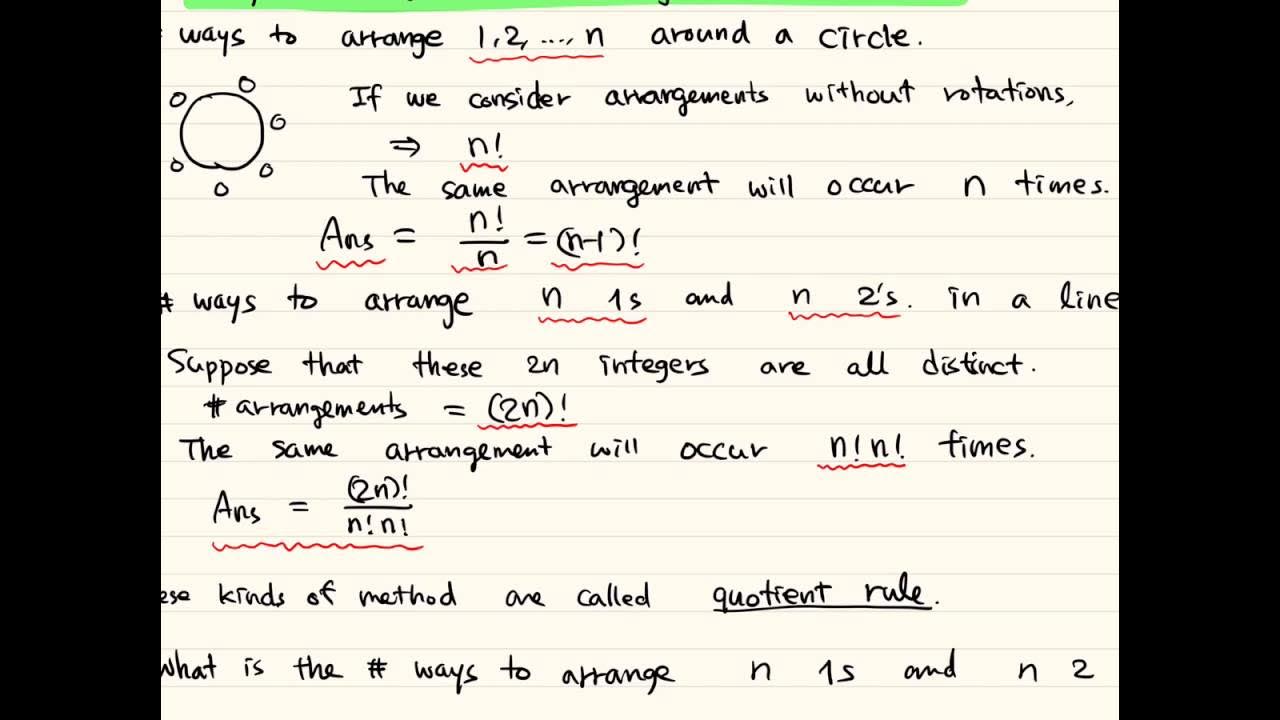 ways to arrange 1, 2, ..., n around a circle.
If we consider arrangements without rotations,
⇒ n!
The same arrangement will occur n times.
Ans = n!/n = (n-1)!
# ways to arrange n 1s and n 2's. in a line
Suppose that these 2n integers are all distinct.
# arrangements = (2n)!
The same arrangement will occur n!n! times.
Ans = (2n)!/n!n!
ese kinds of method are called quotient rule.
What is the # ways to arrange n 1s and n 2